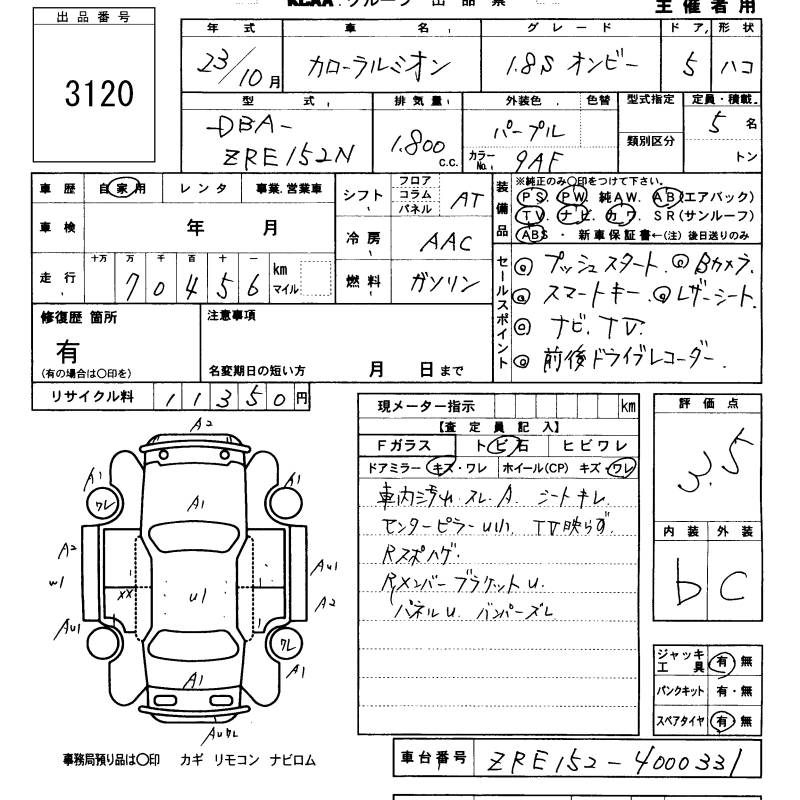 KCAA. グループ 出品票 主催者用
出品番号
3120
年式 車名 グレード ドア 形状
23/10月 カローラルミオン 1.8S オンビー 5 ハコ
型式 排気量 外装色 色替 型式指定 定員・積載
DBA-
ZRE152N
1.800 c.c.
パープル
カラーNo. 9AF
類別区分
5名
トン
車歴 自家用 レンタ 事業.営業車
車検 年 月
走行 十万 万 千 百 十 一
70456 km マイル
シフト フロア コラム パネル AT
冷房 AAC
燃料 ガソリン
装備品
※純正のみ〇印をつけて下さい。
PS. PW. 純AW. AB(エアバック)
TV. ナビ. カワ. SR(サンルーフ)
ABS ・ 新車保証書←(注) 後日送りのみ
セールスポイント
◎ プッシュスタート ◎ Bカメラ.
◎ スマートキー. ◎ レザーシート.
◎ ナビ. TV.
◎ 前後ドライブレコーダー.
修復歴 箇所
有
(有の場合は〇印を)
注意事項
名変期日の短い方 月 日まで
リサイクル料 11350円
現メーター指示 km
【査定員記入】
Fガラス トビ石 ヒビワレ
ドアミラー キズ・ワレ ホイール(CP) キズ・ワレ
車内汚れ スレ. A. シートキレ.
センターピラー U小. TV映らず.
Rスポハゲ.
Rメンバーブラケット U.
パネル U. バンパーズレ
評価点
3.5
内装 外装
b C
ジャッキ工具 有・無
パンクキット 有・無
スペアタイヤ 有・無
A2
A1 A1 A1
ワレ
A2 AU1
W1 XX U1 A2
AU1 ワレ
A1 A1
事務局預り品は〇印 カギ リモコン ナビロム
車台番号 ZRE152-4000331